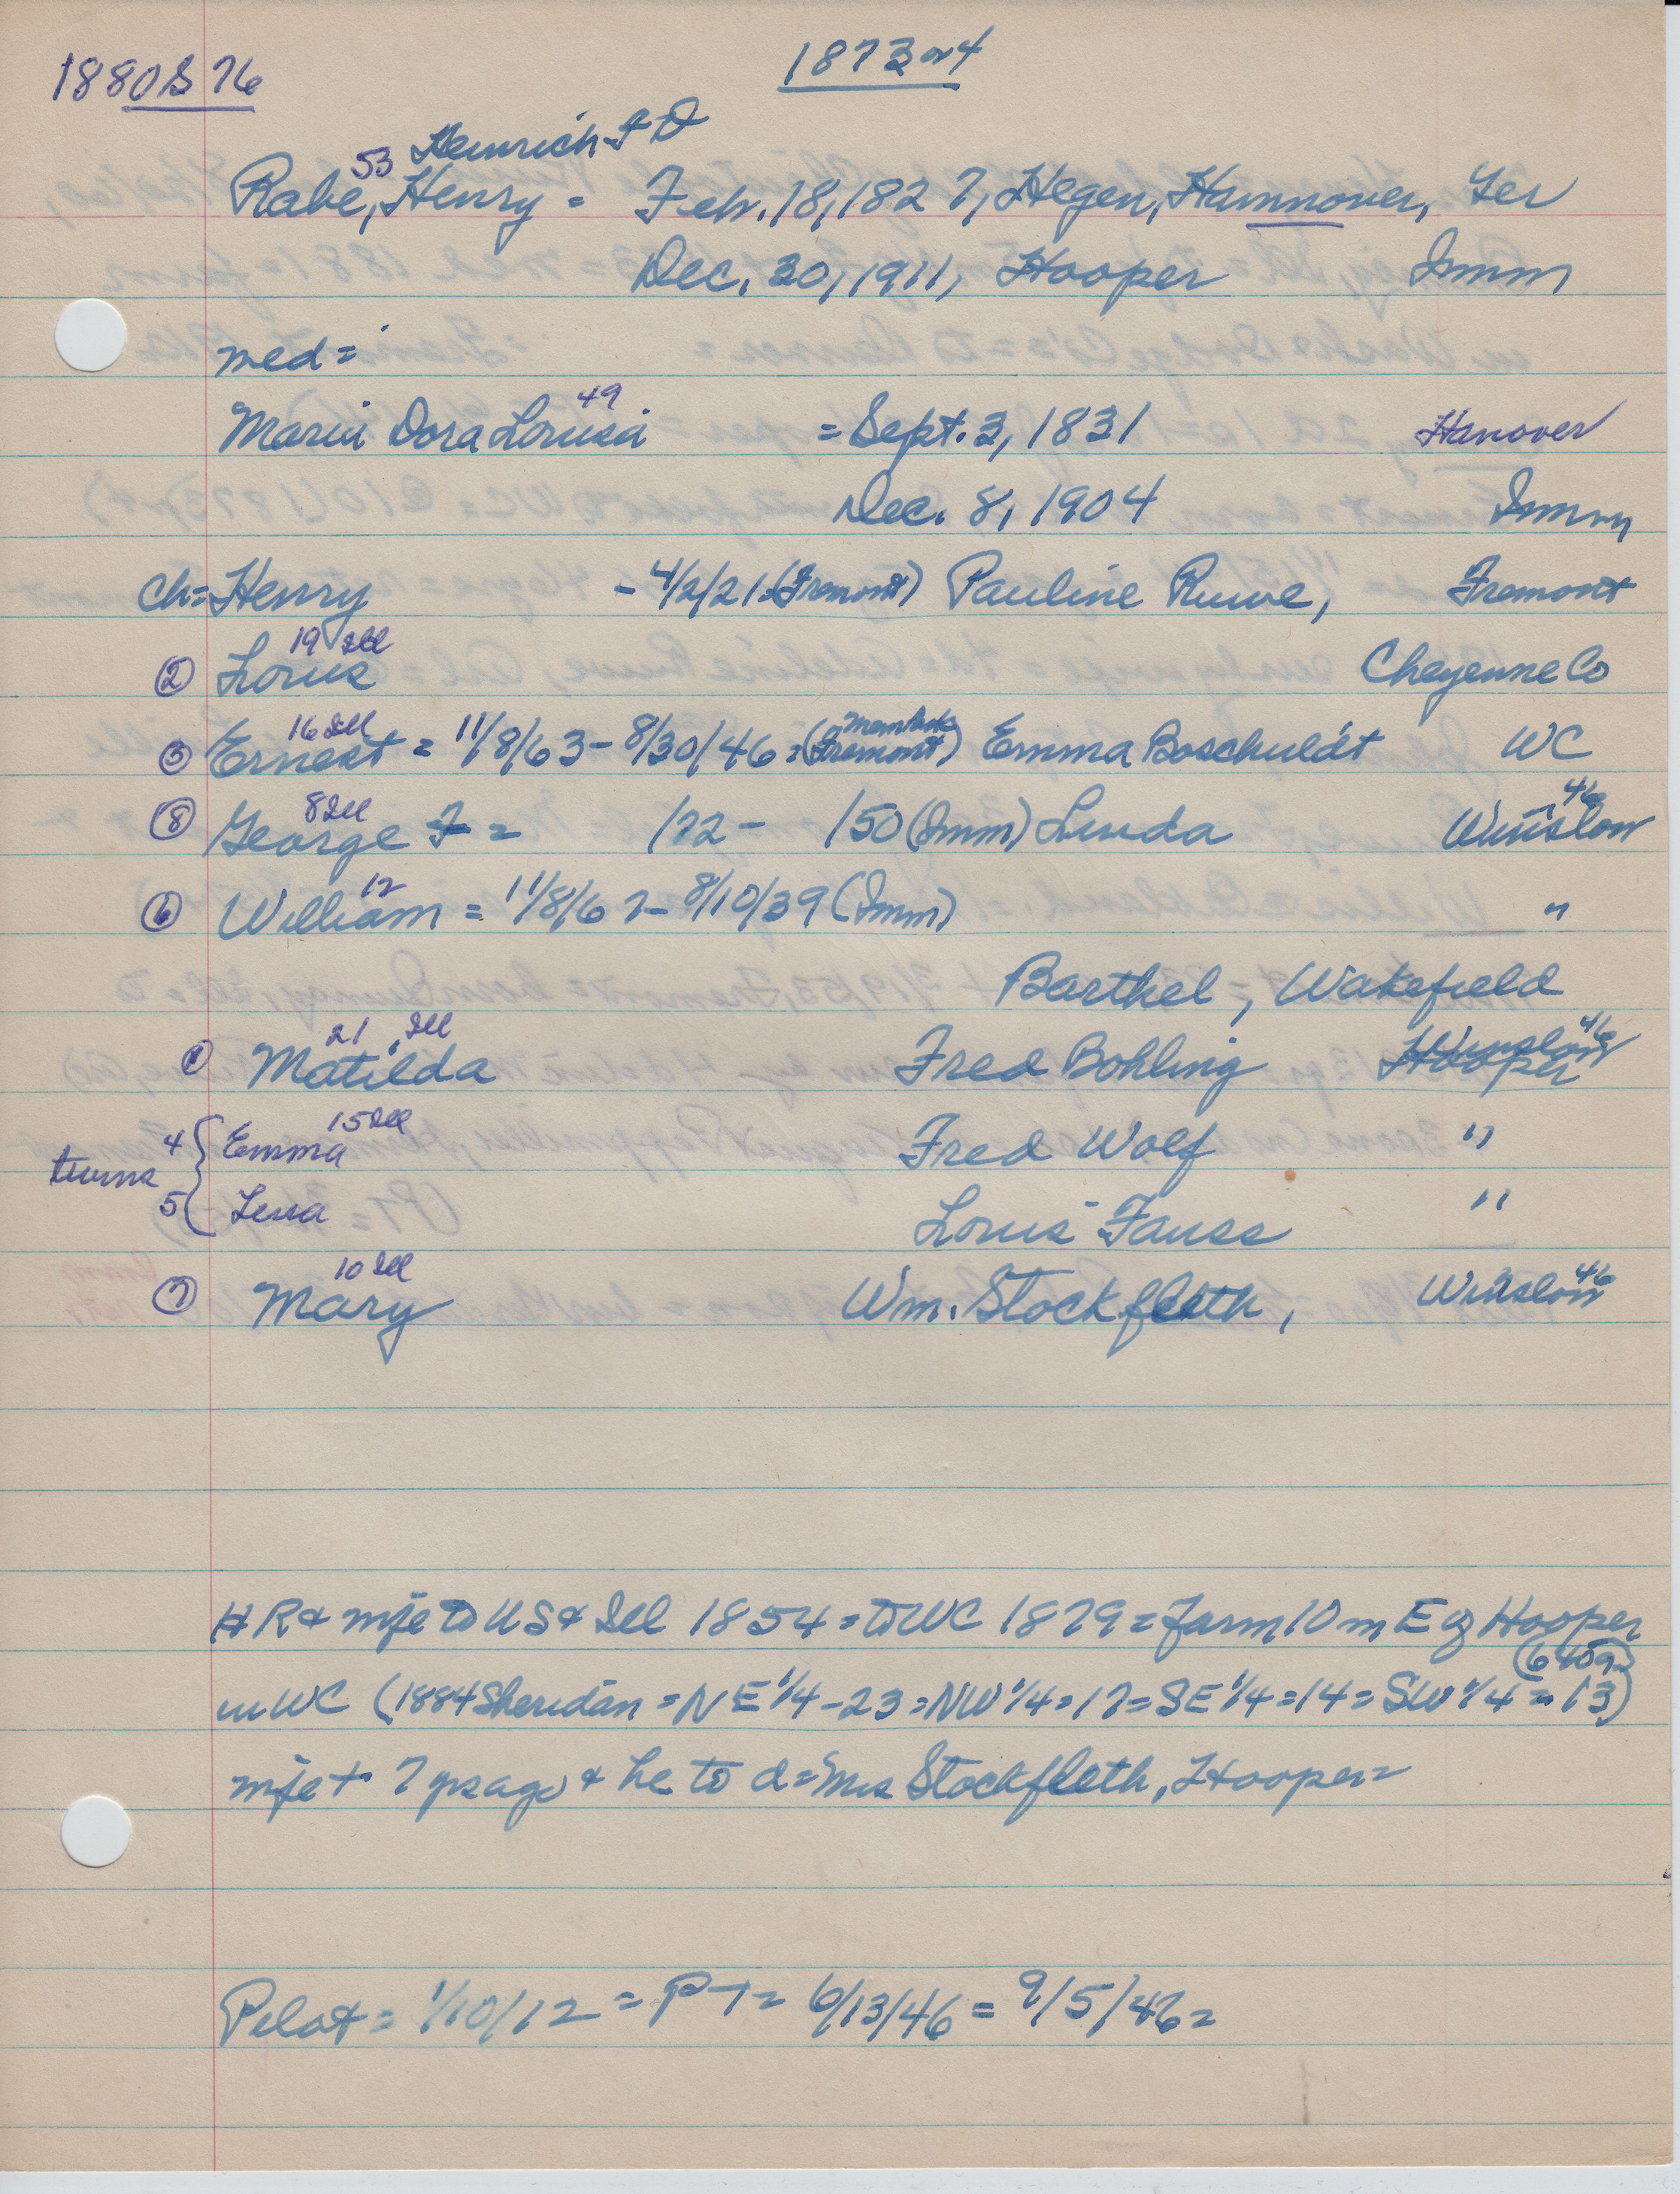 1880S 76
1873 or 4
53 Heinrich F D
Rabe, Henry = Feb. 18, 1827, Hegen, Hannover, Ger
Dec. 30, 1911, Hooper Imm
med =
49
Maria Dora Louisa = Sept. 3, 1831 Hanover
Dec. 8, 1904 Imm
ch = Henry - 4/2/21 = (Fremont) Pauline Ruwe, Fremont
19 Ill
② Louis Cheyenne Co
16 Ill
③ Ernest = 11/8/63 - 8/30/46 = (Fremont) Emma Boschuldt WC
8 Ill 46
⑧ George F = /72 - /50 (Imm) Linda Winslow
12
⑥ William = 11/8/67 - 8/10/39 (Imm) "
Barthel, Wakefield
21 Ill 46
① Matilda Fred Bohling Winslow Hooper
15 Ill
twins 4 { Emma Fred Wolf "
5 { Lena Louis Fauss "
10 Ill 46
⑦ Mary Wm. Stockfleth, Winslow
H R & wife to US & Ill 1854 = to WC 1879 = farm 10 m E of Hooper
(640a)
in WC (1884 Sheridan = NE 1/4 - 23 = NW 1/4 = 17 = SE 1/4 = 14 = SW 1/4 = 13)
wife + 7 yrs ago & he to d = Mrs Stockfleth, Hooper =
Pilot = 1/10/12 = PT = 6/13/46 = 9/5/46 =